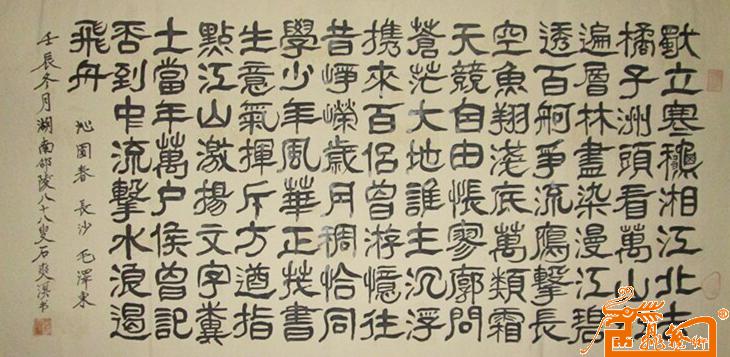 獨立寒龝湘江北去
橘子洲頭看萬山紅
遍層林盡染漫江碧
透百舸爭流鷹擊長
空魚翔淺底萬類霜
天競自由悵寥廓問
蒼茫大地誰主沉浮
携來百侶曾游憶往
昔崢嶸歲月稠恰同
學少年風華正茂書
生意氣揮斥方遒指
點江山激揚文字糞
土當年萬户侯曾記
否到中流擊水浪遏
飛舟
沁園春 長沙 毛澤東
壬辰冬月湖南邵陵八十八叟石爽溟书